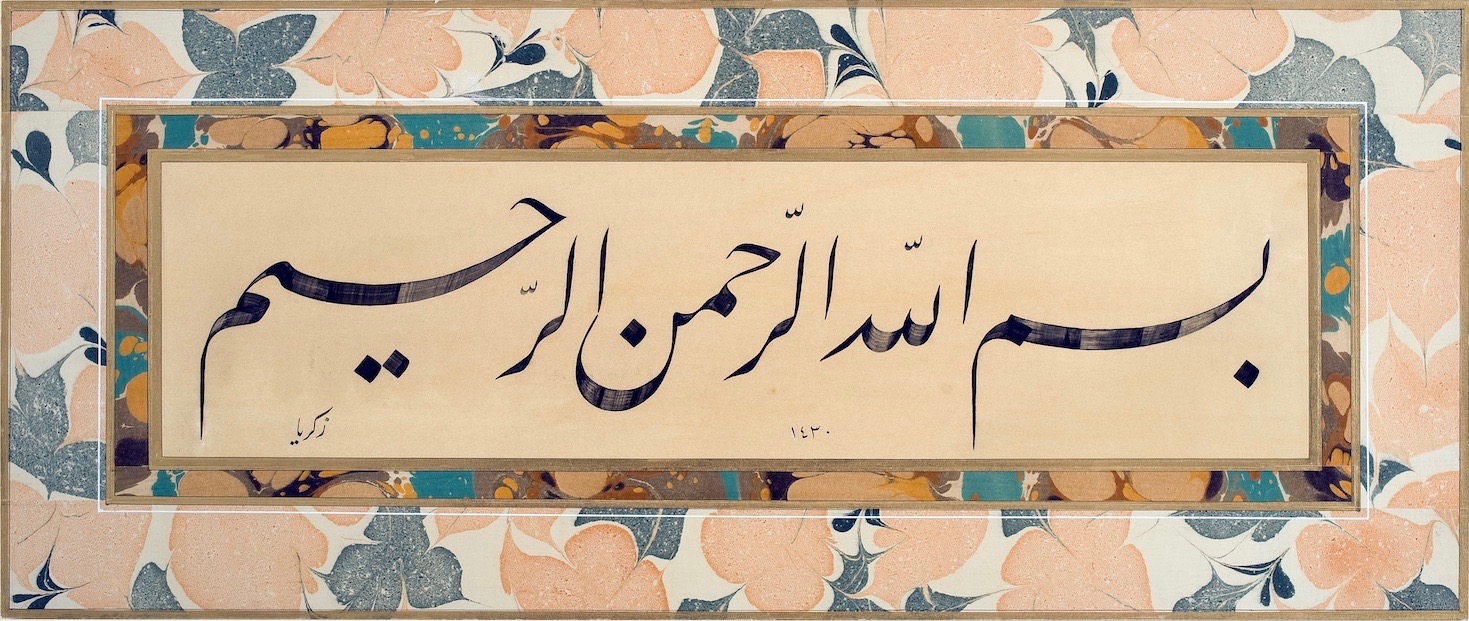 بسم الله الرّحمن الرّحيم
١٤٣٠
زكريا